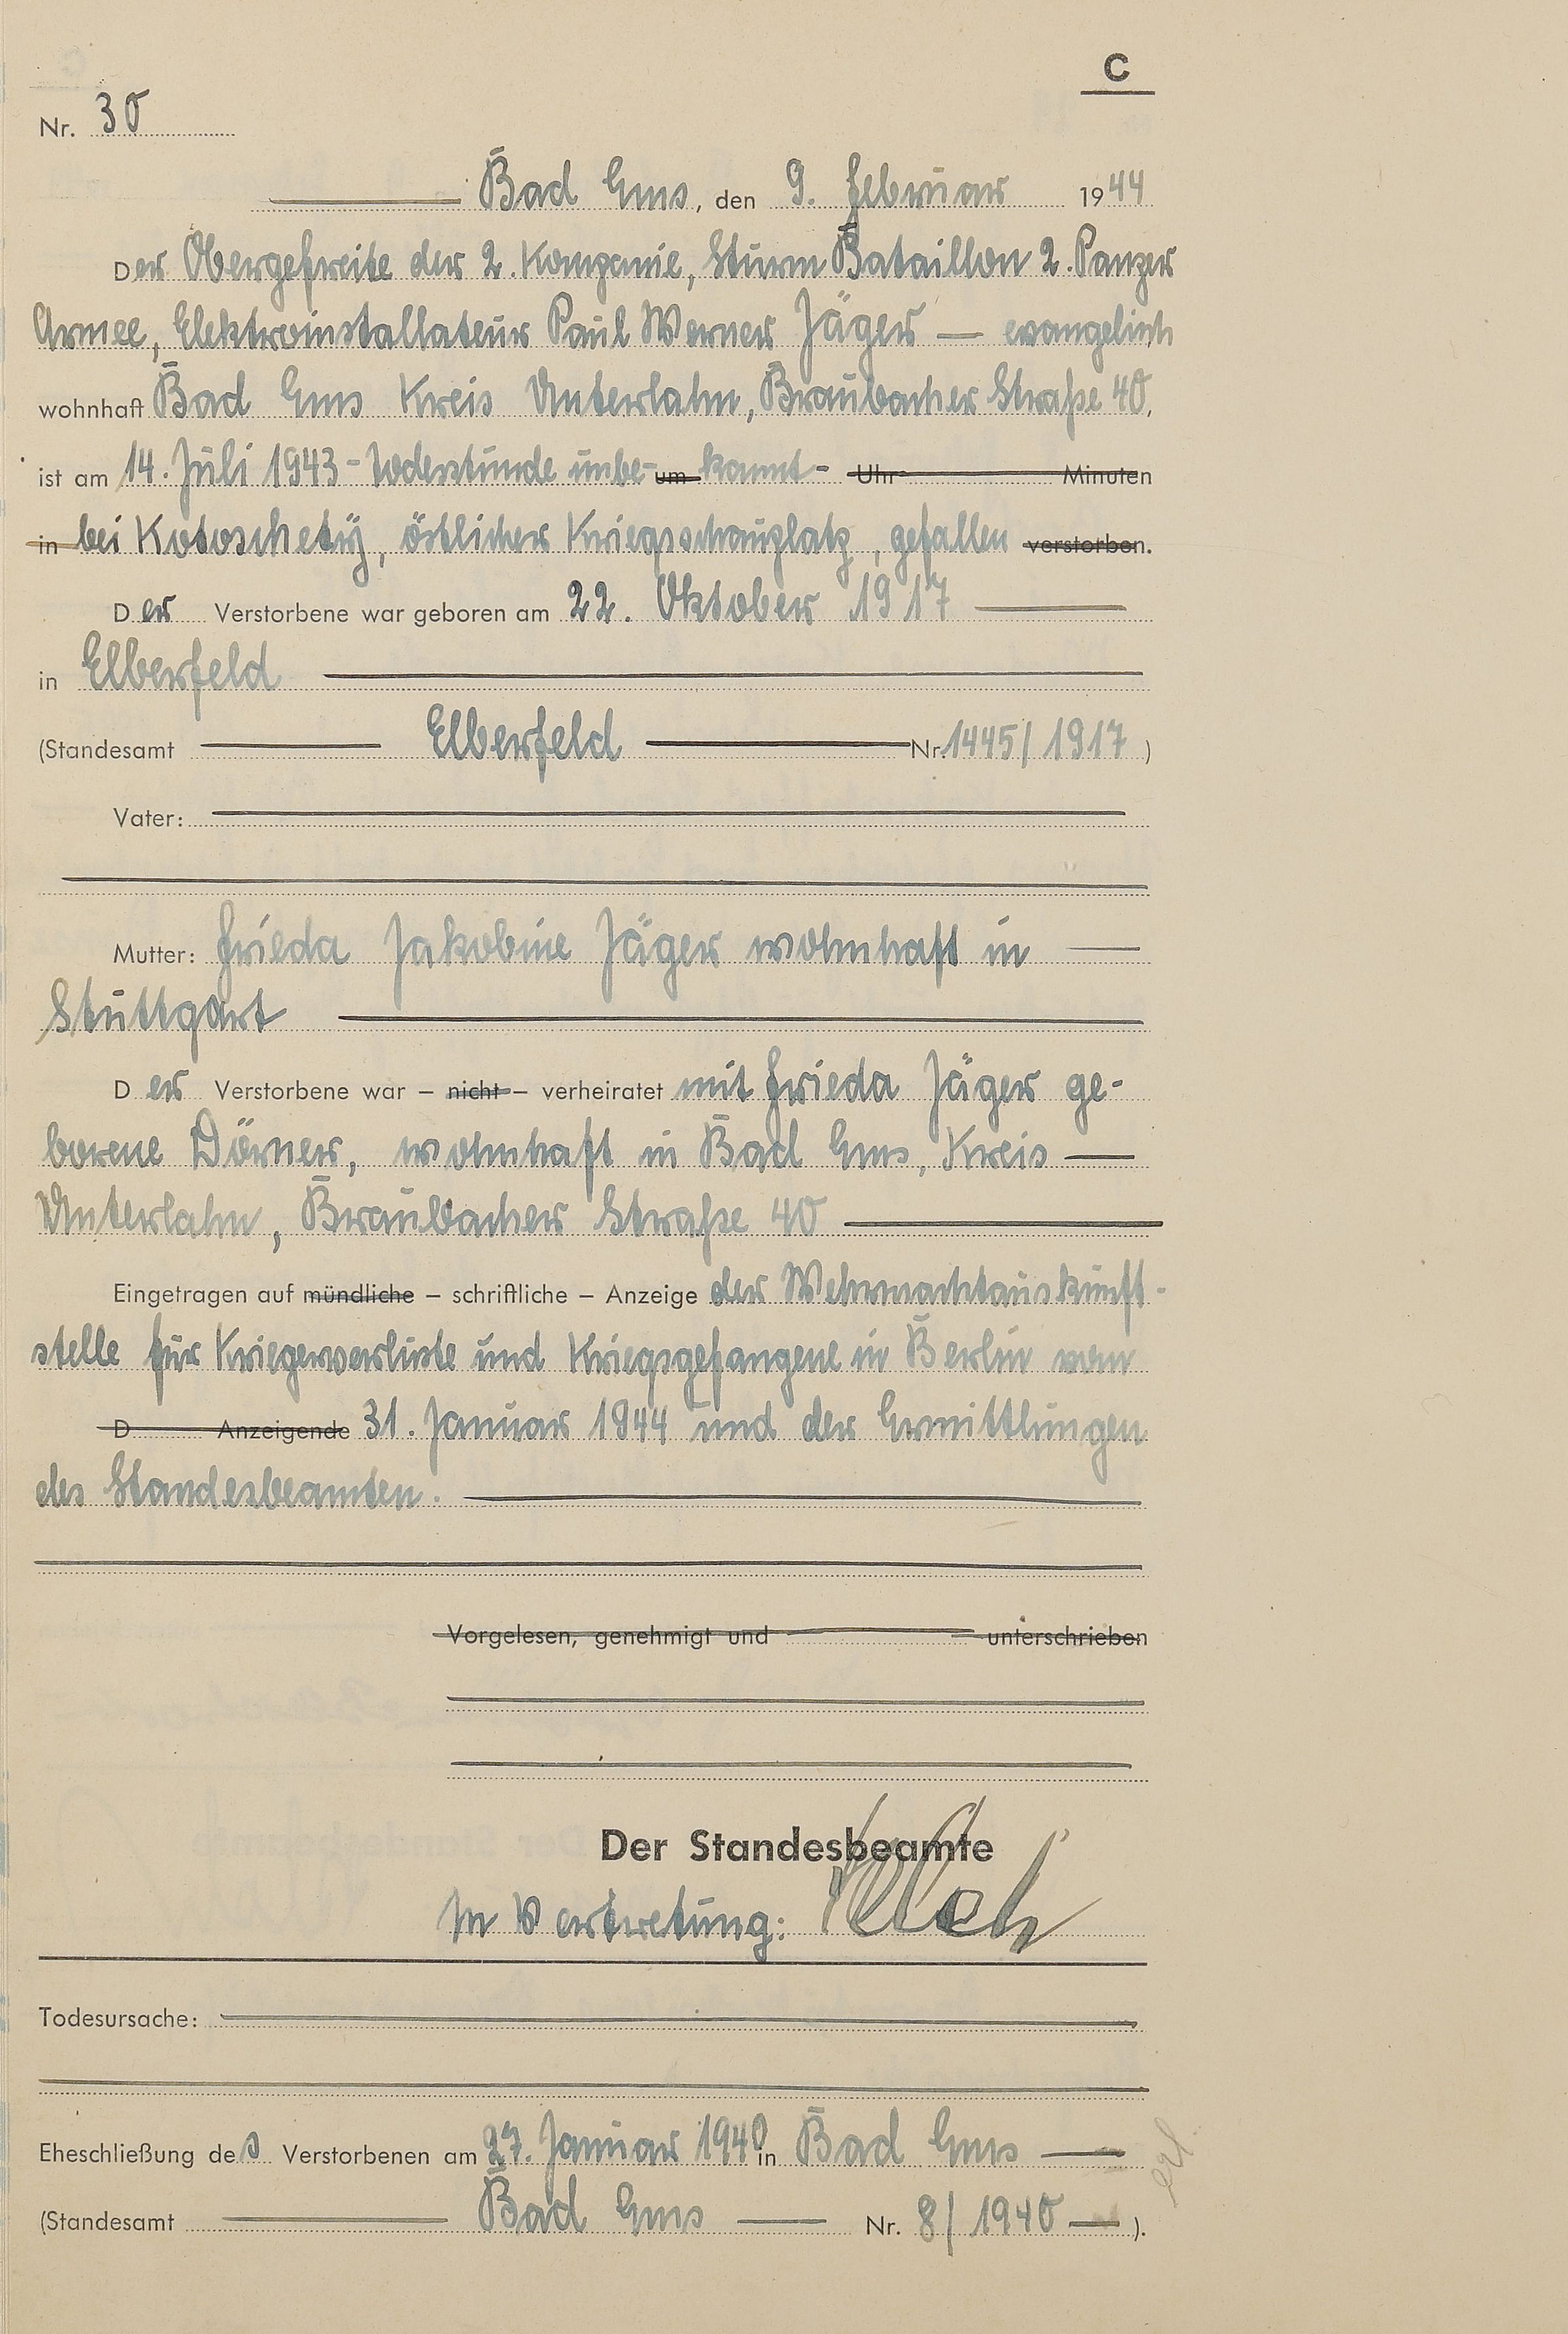 C
Nr. 30
Bad Ems, den 9. Februar 1944
Der Obergefreite der 2. Kompanie, Sturm Bataillon 2. Panzer
Armee, Elektroinstallateur Paul Werner Jäger — evangelisch
wohnhaft Bad Ems Kreis Unterlahn, Braubacher Straße 40,
ist am 14. Juli 1943 - Todesstunde unbe- um kannt - Uhr Minuten
in bei Kotoschetÿ, östlicher Kriegsschauplatz, gefallen verstorben.
Der Verstorbene war geboren am 22. Oktober 1917
in Elberfeld
(Standesamt Elberfeld Nr. 1445/1917)
Vater:
Mutter: Frieda Jakobine Jäger wohnhaft in
Stuttgart
Der Verstorbene war – nicht – verheiratet mit Frieda Jäger ge-
borene Dörner, wohnhaft in Bad Ems, Kreis
Unterlahn, Braubacher Straße 40
Eingetragen auf mündliche – schriftliche – Anzeige der Wehrmachtauskunft-
stelle für Kriegerverluste und Kriegsgefangene in Berlin vom
D Anzeigende 31. Januar 1944 und der Ermittlungen
des Standesbeamten.
Vorgelesen, genehmigt und unterschrieben
Der Standesbeamte
In Vertretung:
Todesursache:
Eheschließung des Verstorbenen am 27. Januar 1940 in Bad Ems
(Standesamt Bad Ems Nr. 8/1940).